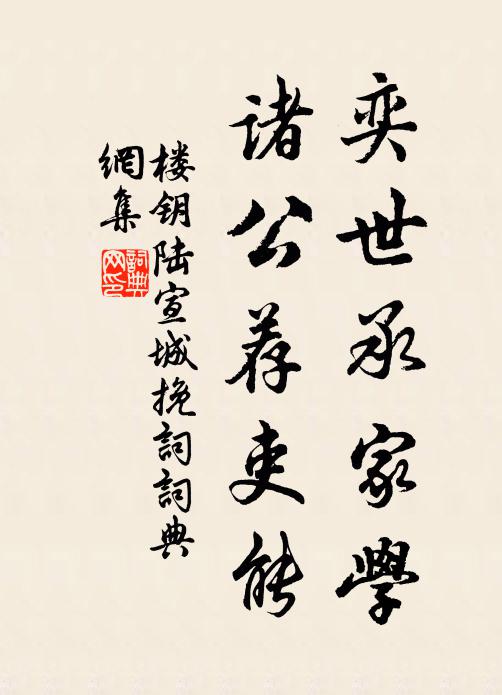 奕世承家學
诸公荐吏能
楼钥陆宣城挽詞詞典
網集
詞典
网印